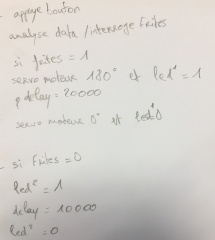 - appuye bouton
analyse data / interroge frites
si frites = 1
servo moteur 180° et led¹ = 1
delay = 20000
servo moteur 0° et led¹ 0
- si frites = 0
led² = 1
delay = 10000
led² = 0